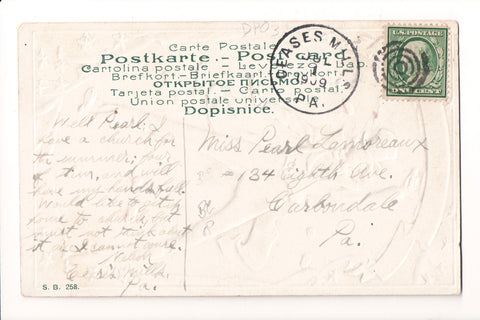 DPO3
Carte Postale
Postkarte - Post card
Cartolina postale - Levelező-Lap.
Brefkort - Briefkaart
ОТКРЫТОЕ ПИСЬМО
Tarjeta postal - Carto postal
Union postale universelle
Dopisnice.
CEASES MILLS
JUL
1909
PA.
U.S. POSTAGE
ONE CENT
Well Pearl; I
have a church for
the summer; four
of them, and will
have my hands full.
Would like to get
home to church, but
must not think about
it as I cannot
Cease's Mills,
Pa.
Miss Pearl Lamoreaux
134 Eighth Ave.
Carbondale
Pa.
S. B. 258.